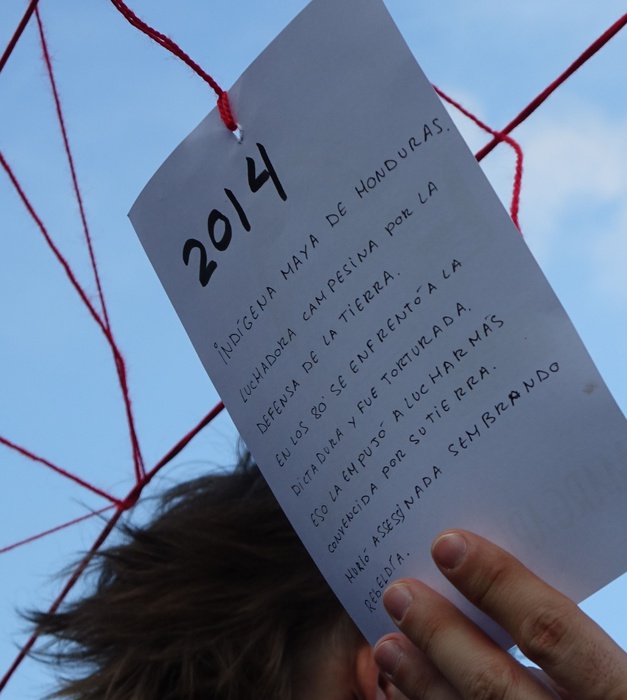 2014
INDÍGENA MAYA DE HONDURAS.
LUCHADORA CAMPESINA POR LA
DEFENSA DE LA TIERRA.
EN LOS 80' SE ENFRENTÓ A LA
DICTADURA Y FUE TORTURADA.
ESO LA EMPUJÓ A LUCHAR MÁS
CONVENCIDA POR SU TIERRA.
MURIÓ ASSESINADA SEMBRANDO
REBELDÍA.